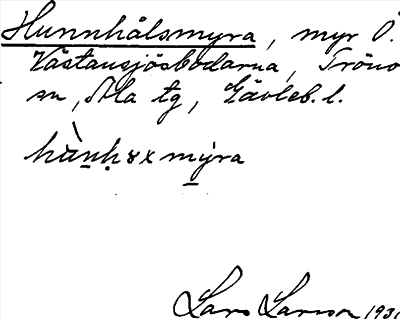 Hunnhålsmyra, myr Ö.
Västansjösbodarna, Trönö
sn, Ala tg, Gävleb. l.
mýra
Lars Larsson 193